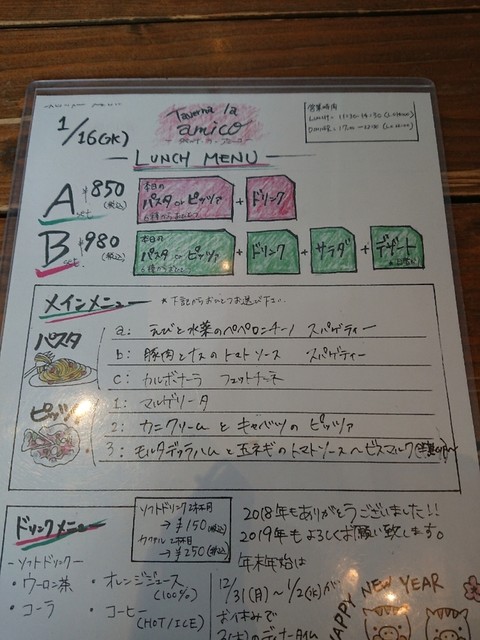 1/16(水)
Taverna la
amico
営業時間
LUNCH: 11:30-14:30
DINNER:
LUNCH MENU
A set ¥850 (税込) 本日の パスタ or ピッツァ 6種からおひとつ + ドリンク
B set ¥980 (税込) 本日の パスタ or ピッツァ 6種からおひとつ + ドリンク + サラダ + デザート
メインメニュー *下記からおひとつお選び下さい
パスタ
a: えびと水菜のペペロンチーノ スパゲティー
b: 豚肉とナスのトマトソース スパゲティー
c: カルボナーラ フェットチーネ
ピッツァ
1: マルゲリータ
2: カニクリームとキャベツのピッツァ
3: モルタデッラハムと玉ネギのトマトソース〜ビスマルク
ドリンクメニュー
ソフトドリンク2杯目
→¥150(税込)
カクテル2杯目
→¥250(税込)
ーソフトドリンクー
・ウーロン茶 ・オレンジジュース
(100%)
・コーラ ・コーヒー
(HOT/ICE)
2018年もありがとうございました!!
2019年もよろしくお願い致します。
年末年始は
12/31(月)〜1/2(水)が
お休みで
のディナータイム
HAPPY NEW YEAR